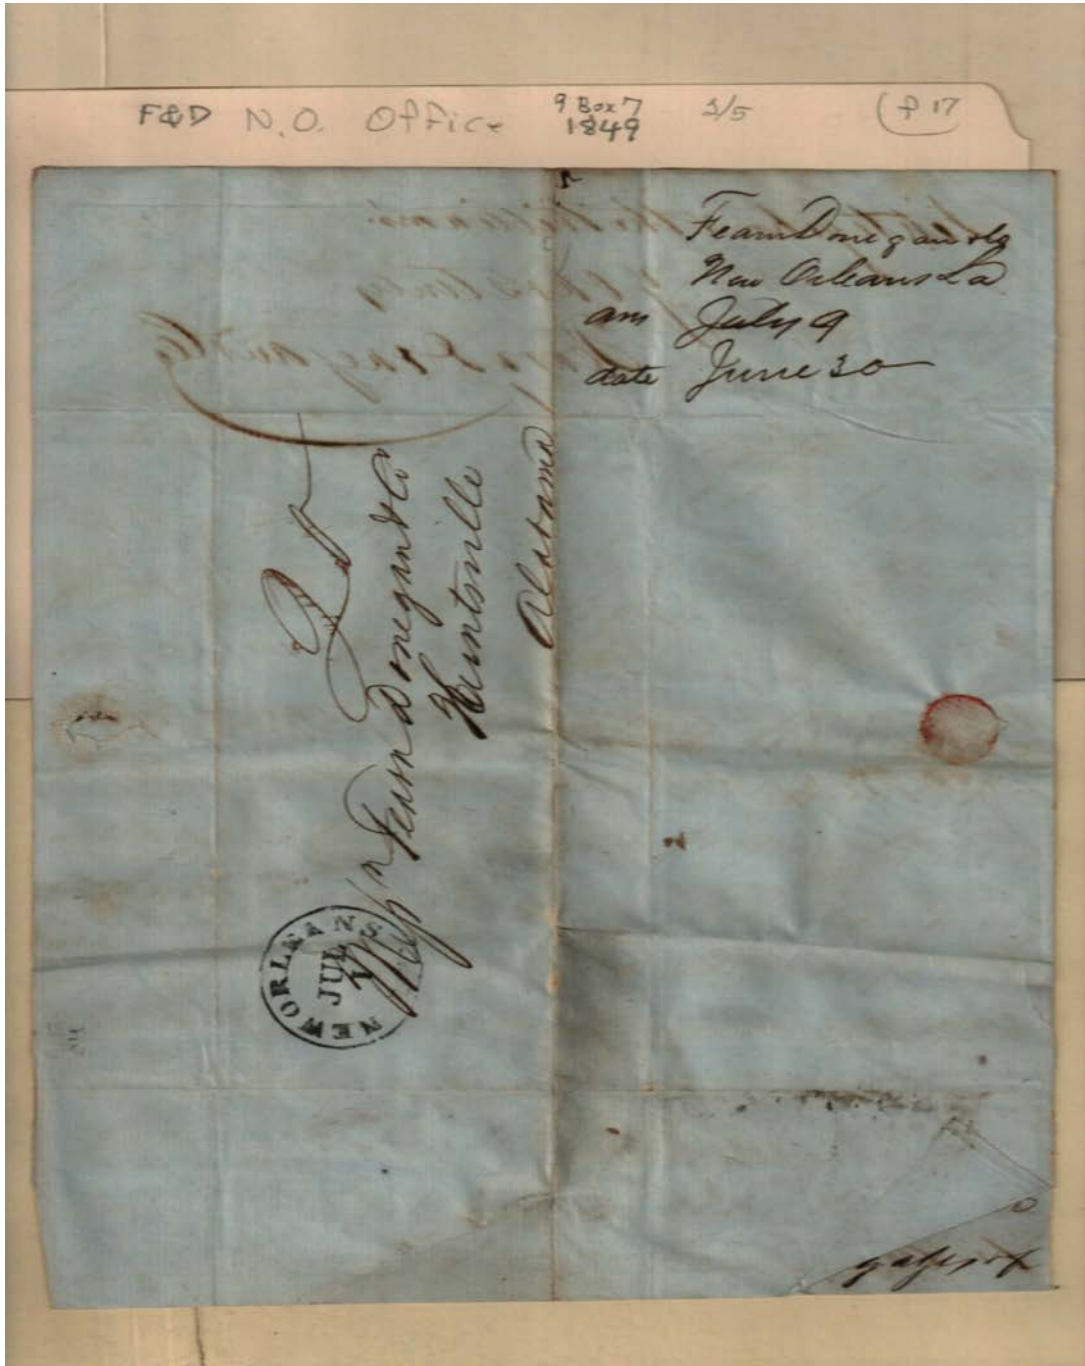 F&D N.O. Office 9 Box 7 1849 2/5 f 17
Fearn Donegan & Co
New Orleans La
ans July 9
date June 30
Fearn Donegan & Co
Huntsville
Alabama
NEW ORLEANS
JUL
1